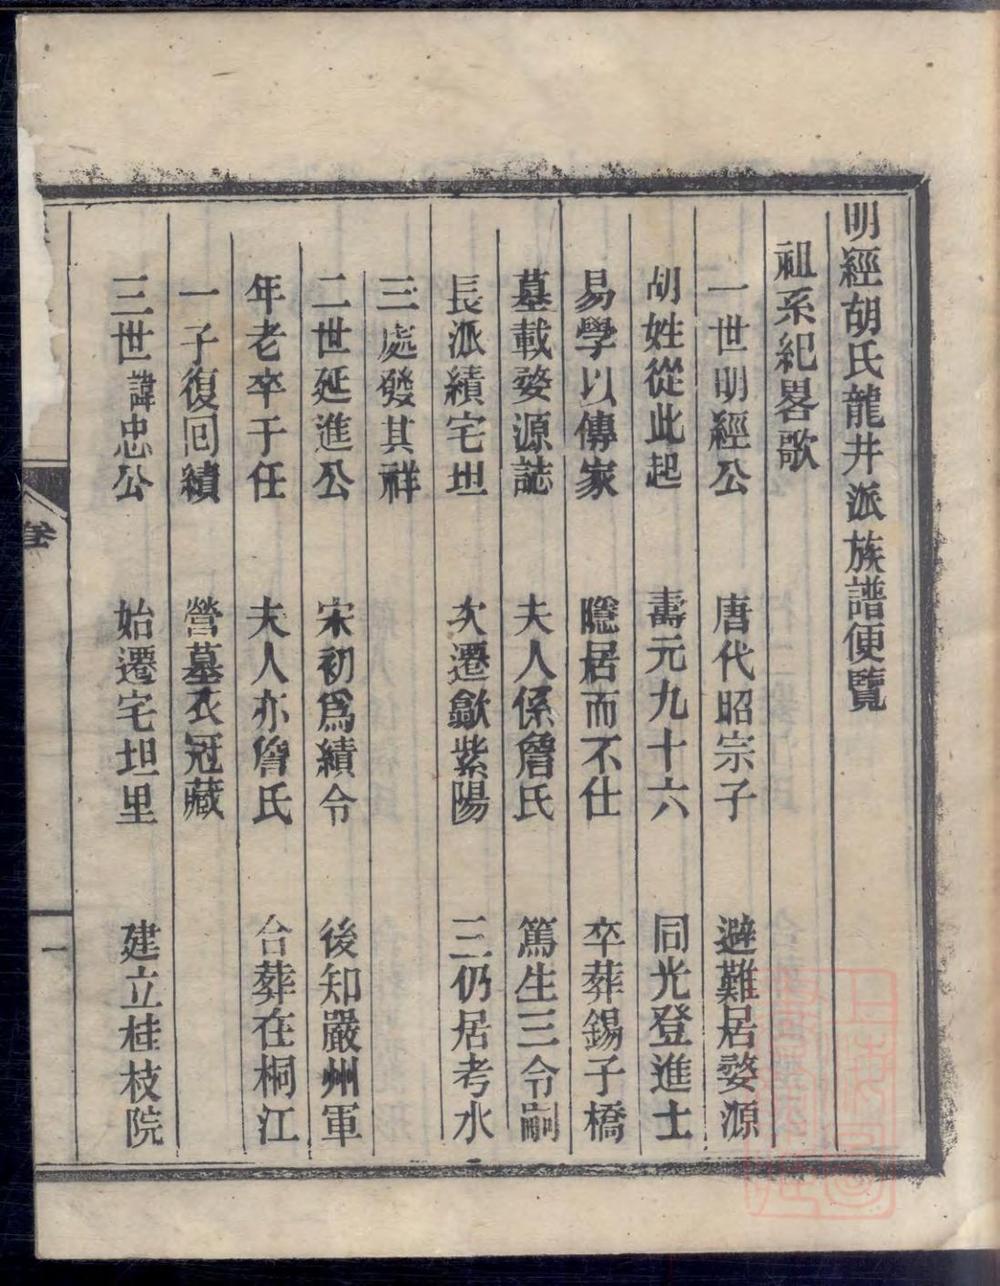 明經胡氏龍井派族譜便覽
祖系紀畧歌
一世明經公 唐代昭宗子 避難居婺源
胡姓從此起 壽元九十六 同光登進士
易學以傳家 隱居而不仕 卒葬錫子橋
墓載婺源誌 夫人係詹氏 篤生三令嗣
長派績宅坦 次遷歙紫陽 三仍居考水
三處發其祥
二世延進公 宋初爲績令 後知嚴州軍
年老卒于任 夫人亦詹氏 合葬在桐江
一子復回績 營墓衣冠藏
三世諱忠公 始遷宅坦里 建立桂枝院
卷
一